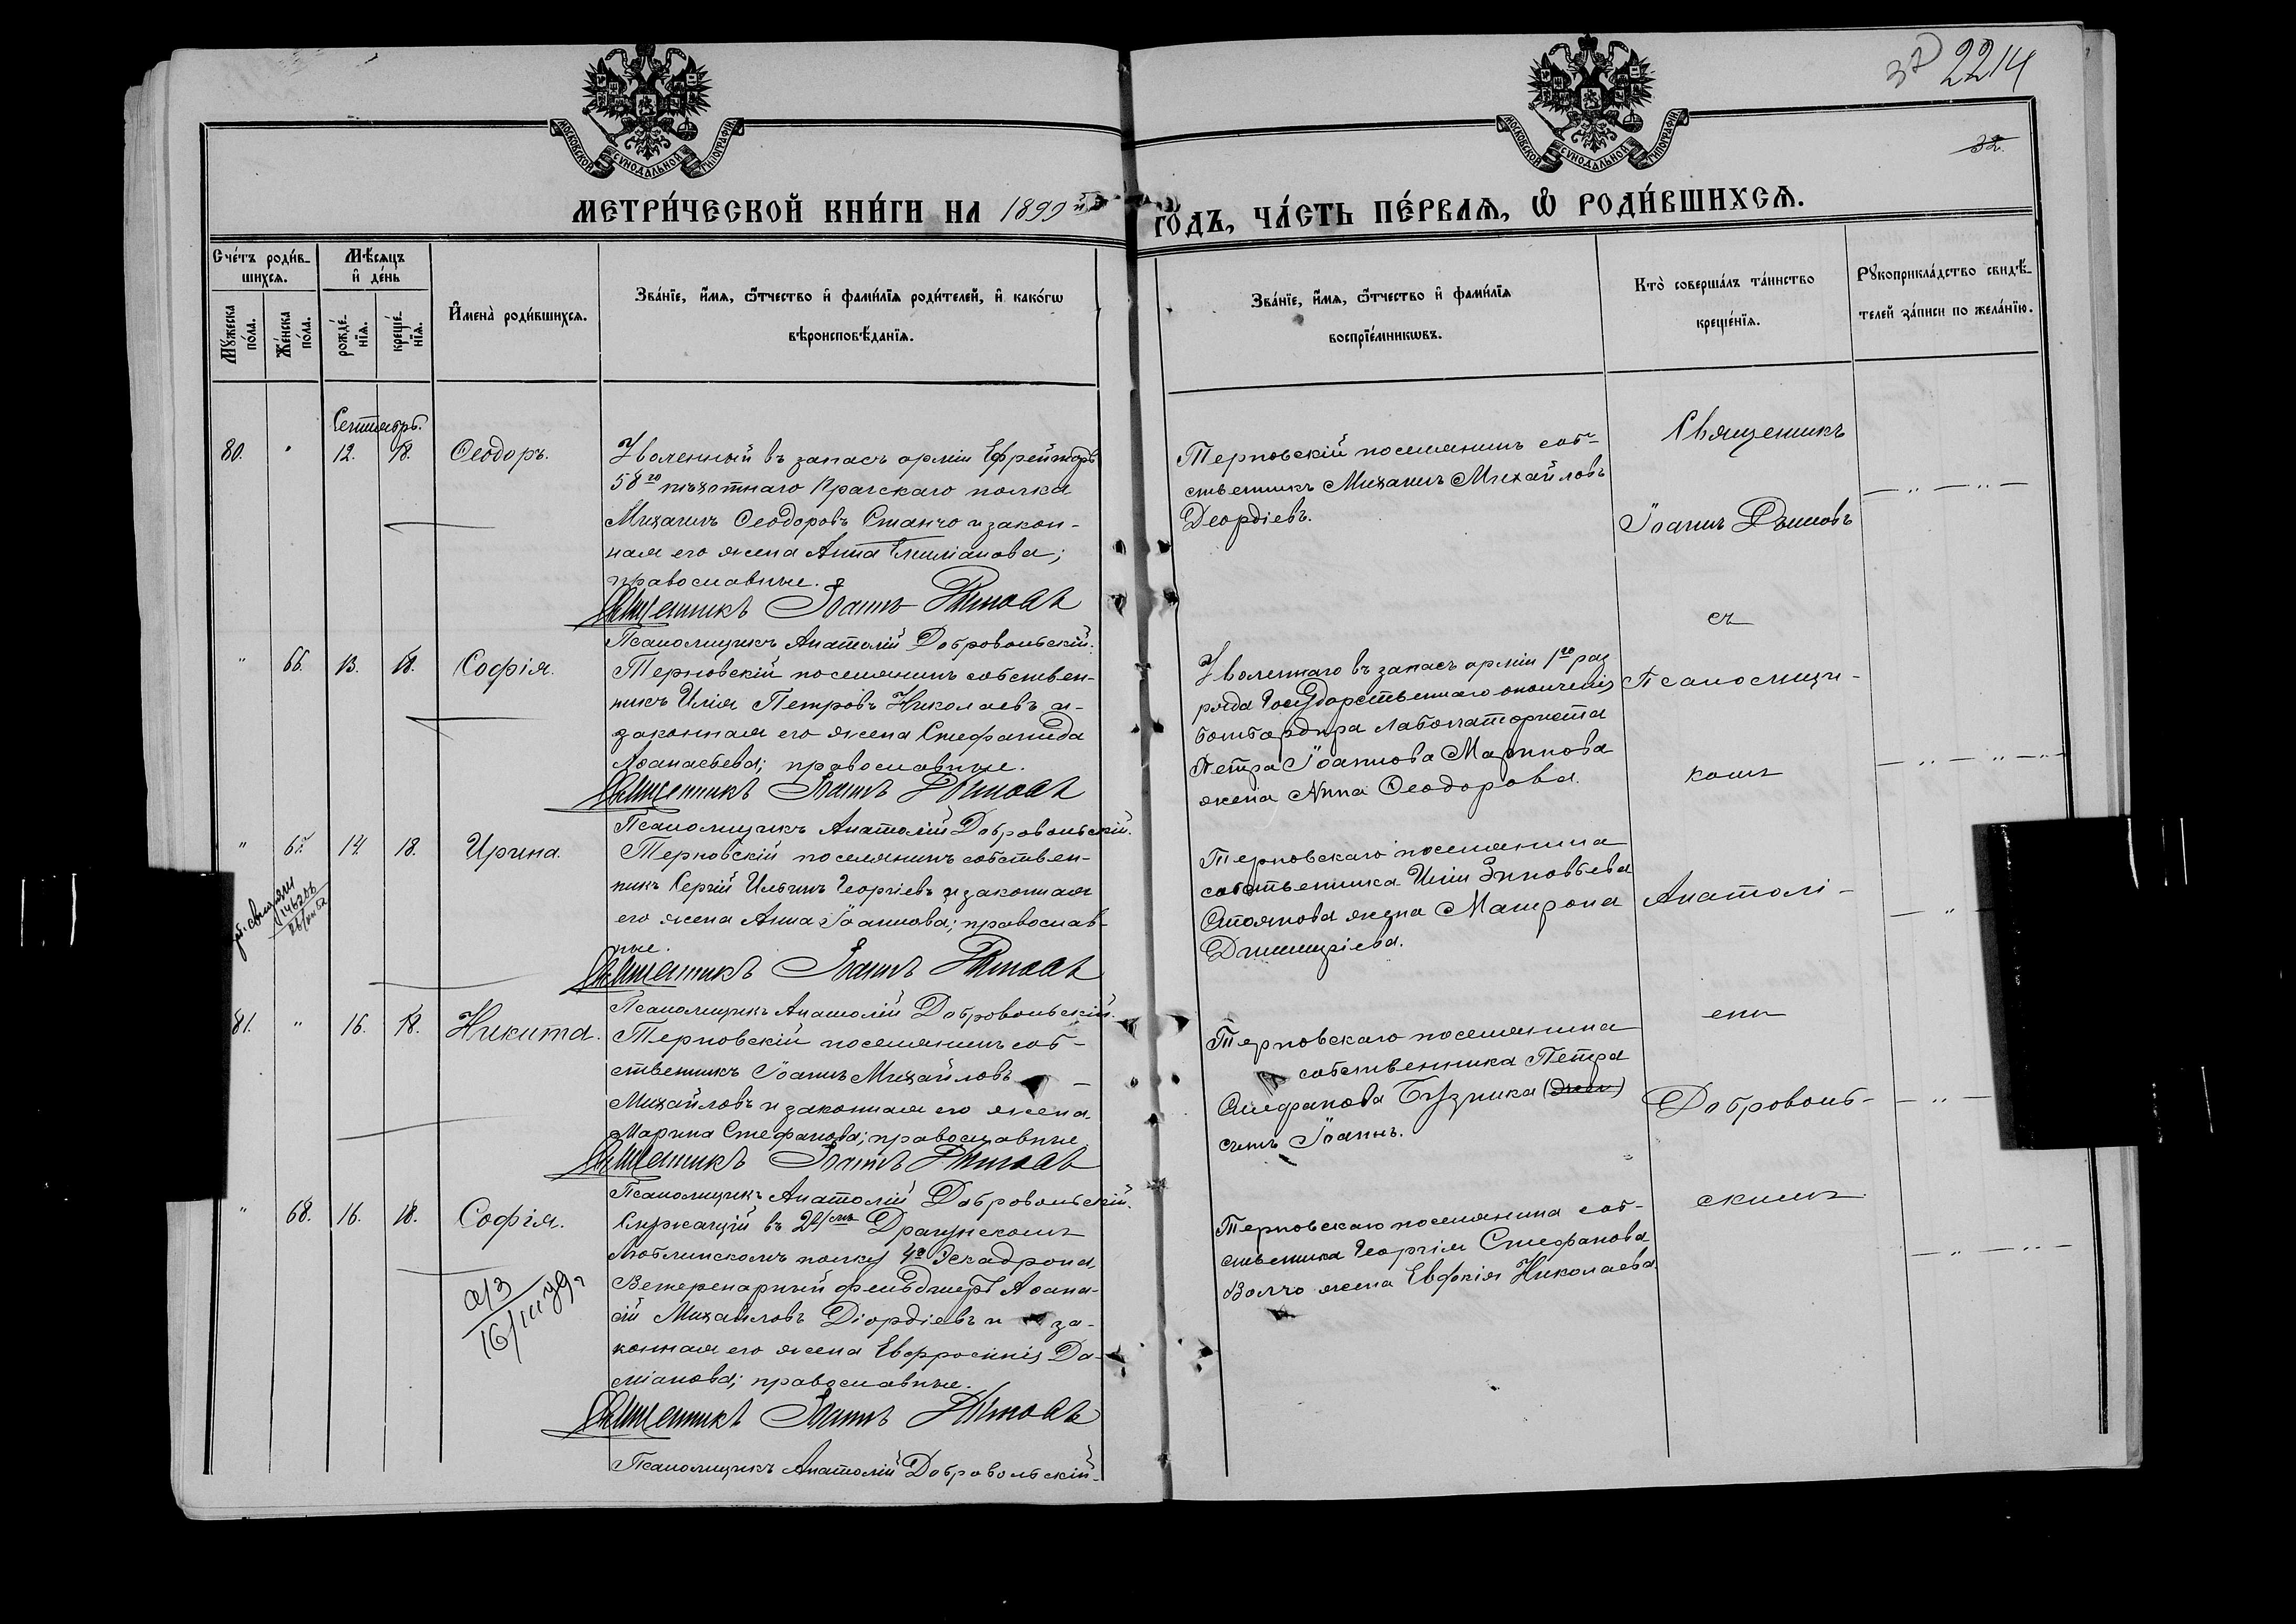 37 2214
32.
МОСКОВСКОЙ СУНОДАЛЬНОЙ ТИПОГРАФІИ
МОСКОВСКОЙ СУНОДАЛЬНОЙ ТИПОГРАФІИ
МЕТРИ́ЧЕСКОЙ КНИ́ГИ НА 1899й ГО́ДЪ, ЧА́СТЬ ПЕ́РВАѦ, Ѡ҆ РОДИ́ВШИХСѦ.
Сче́тъ роди́в-
шихсѧ.
Мѣ́сѧцъ
и҆ де́нь
Мꙋ́жеска
по́ла.
Же́нска
по́ла.
рожде́-
нїѧ.
креще́-
нїѧ.
И҆мена̀ роди́вшихсѧ.
Зва́нїе, и҆́мѧ, ѻ҆́тчество и҆ фами́лїѧ роди́телей, и҆ како́гѡ
вѣроисповѣ́данїѧ.
Зва́нїе, и҆́мѧ, ѻ҆́тчество и҆ фами́лїѧ
воспрїе́мникѡвъ.
Кто̀ соверша́лъ та́инство
креще́нїѧ.
Рꙋкоприкла́дство свидѣ́-
телей за́писи по жела́нїю.
Сентябрь.
80. " 12. 18. Ѳеодоръ.
Уволенный въ запасъ арміи Ефрейторъ
58го пѣхотнаго Прагскаго полка
Михаилъ Ѳеодоровъ Станчо и закон-
ная его жена Анна Емиліанова;
православные.
Священникъ Іоаннъ Дымовъ
Псаломщикъ Анатолій Добровольскій.
Терновскій поселянинъ соб-
ственникъ Михаилъ Михайловъ
Деордіевъ.
Священникъ
Іоаннъ Дымовъ
съ
Псаломщи-
комъ
Анатолі-
емъ
Доброволь-
скимъ
" 66. 13. 18. Софія.
Терновскій поселянинъ собствен-
никъ Илія Петровъ Николаевъ и
законная его жена Стефанида
Аѳанасьева; православные.
Священникъ Іоаннъ Дымовъ
Псаломщикъ Анатолій Добровольскій.
Уволеннаго въ запасъ арміи 1го раз
ряда Государственнаго ополченія
бомбардира лабораториста
Петра Іоаннова Маринова
жена Анна Ѳеодорова.
" 67. 14. 18. Ирина.
Терновскій поселянинъ собствен-
никъ Сергій Ильинъ Георгіевъ и законная
его жена Анна Іоаннова; православ-
ные.
Священникъ Іоаннъ Дымовъ
Псаломщикъ Анатолій Добровольскій.
Терновскаго поселянина
собственника Иліи Зиновьева
Стоянова жена Матрона
Димитріева.
81. " 16. 18. Никита.
Терновскій поселянинъ соб-
ственникъ Іоаннъ Михайловъ
Михайловъ и законная его жена
Марина Стефанова; православные.
Священникъ Іоаннъ Дымовъ
Псаломщикъ Анатолій Добровольскій.
Терновскаго поселянина
собственника Петра
Стефанова Бузника
сынъ Іоаннъ.
" 68. 16. 18. Софія.
Служащій въ 24мъ Драгунскомъ
Лубенскомъ полку 4го Эскадрона
Ветеренарный фельдшеръ Аѳана-
сій Михайловъ Діордіевъ и за-
конная его жена Евфросинія Да-
міанова; православные.
Священникъ Іоаннъ Дымовъ
Псаломщикъ Анатолій Добровольскій.
Терновскаго поселянина соб-
ственника Георгія Стефанова
Волчо жена Евфимія Николаева.
а/з
16/III 79 г